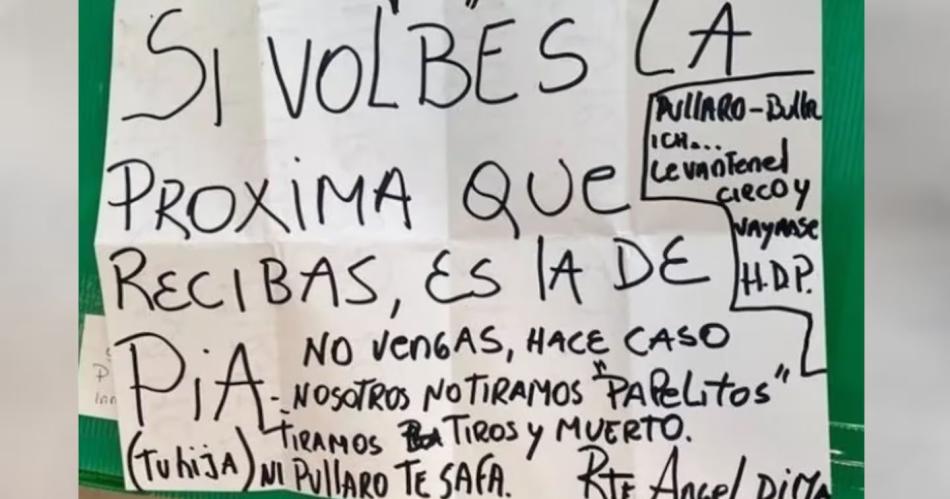 SI VOLBES LA
PROXIMA QUE
RECIBAS, ES LA DE
PIA
(TU hiJA)
PULLARO-Bulla
ICH...
LevanTenel
CIRCO y
VAYAnSE
H.D.P.
NO VENGAS, HACE CASO
NOSOTROS NO TIRAMOS "PAPeLiTOS"
TIRAMOS TIROS y MUERTO.
NI PULLARO TE SAFA.
RTE Angel DiMA